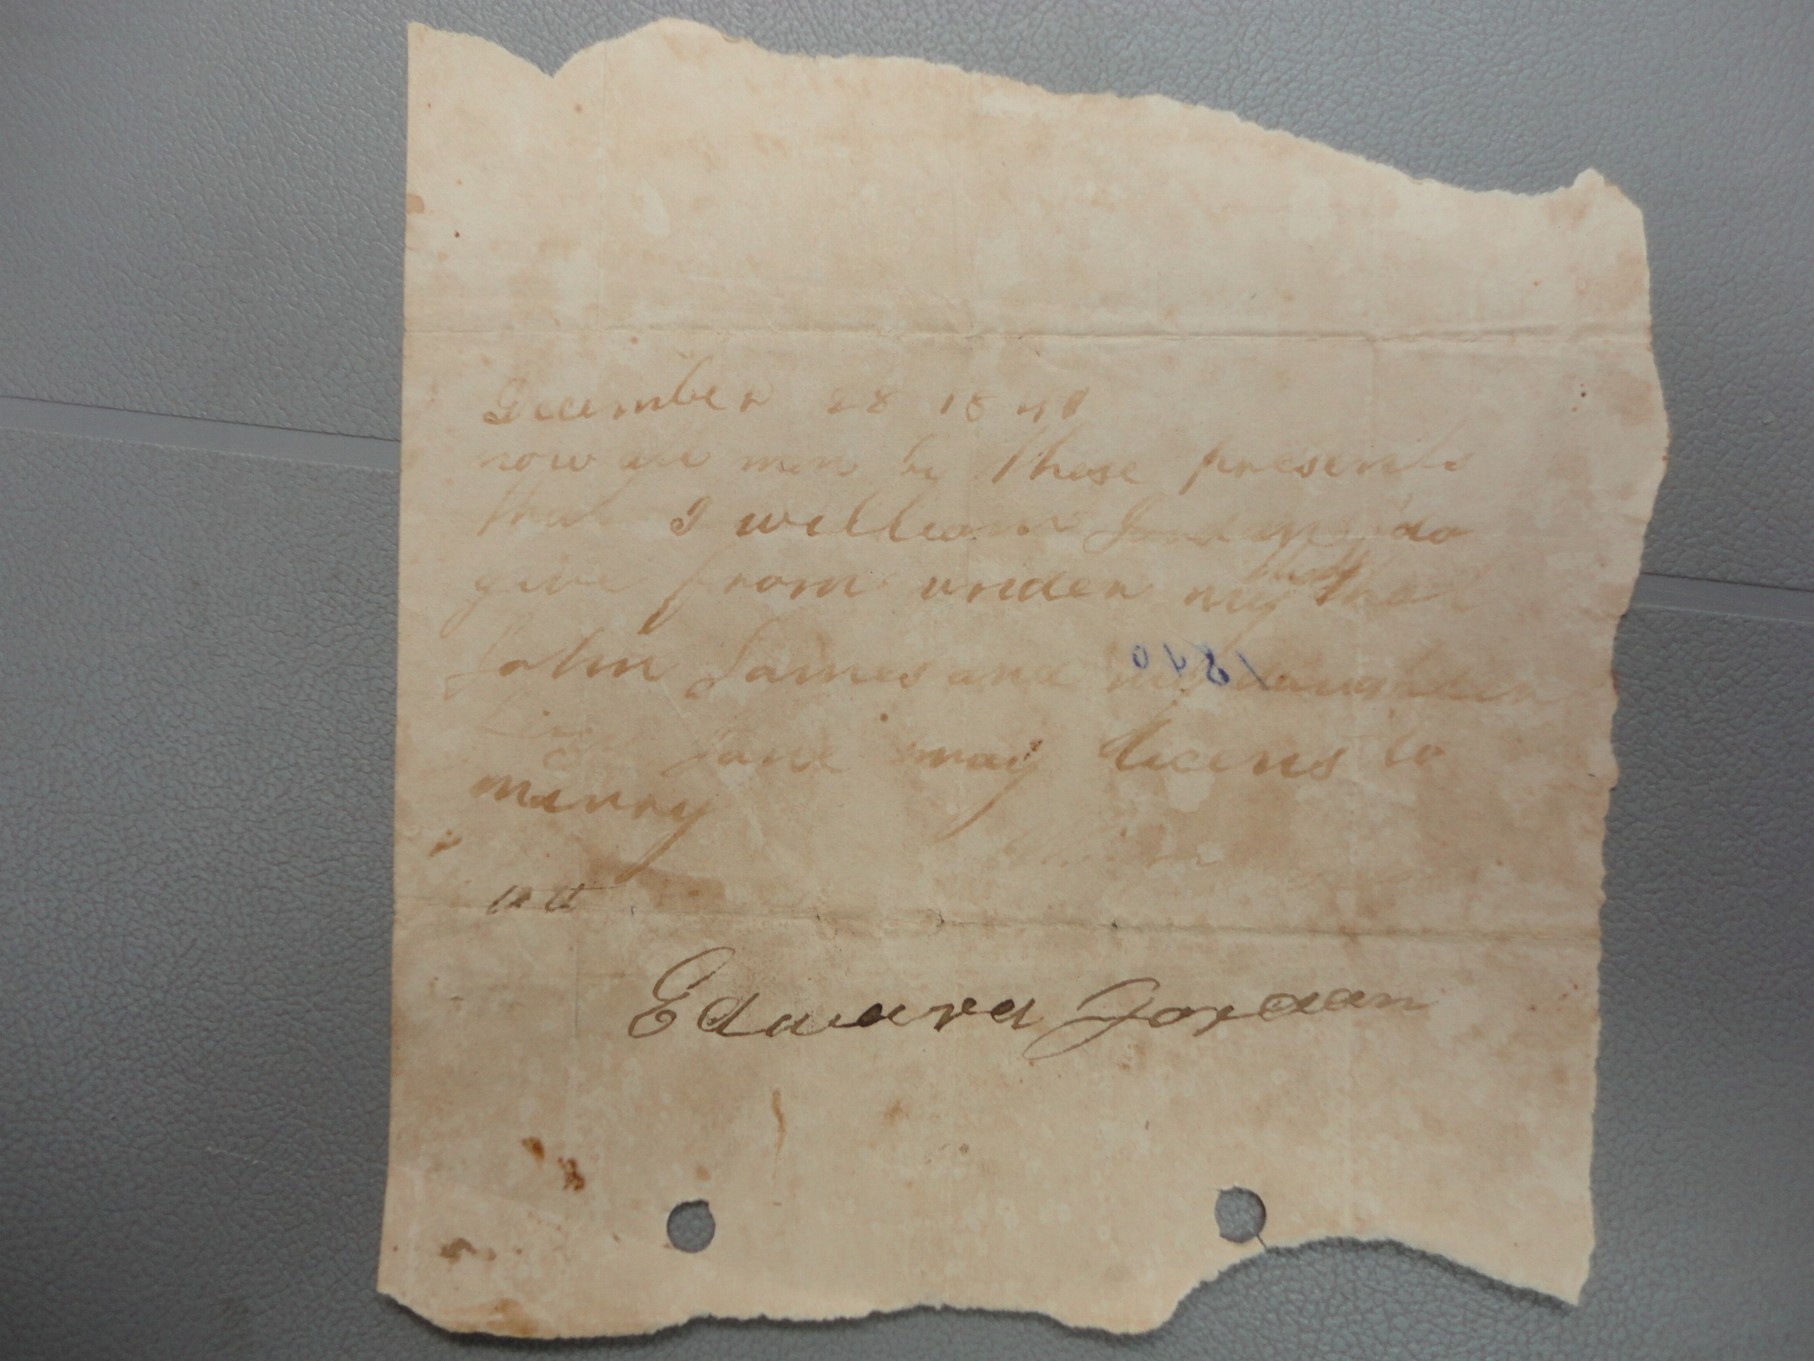 December 28 1840
now all men by these presents
that I william Jordan do
give from under my hand that
John James and my daughter
Jane may licens to
marry
William
test
Edward Jordan
1840